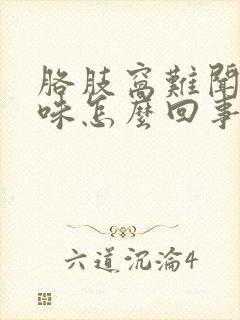 胳肢窩難聞
味怎麼回事
六道沉淪4